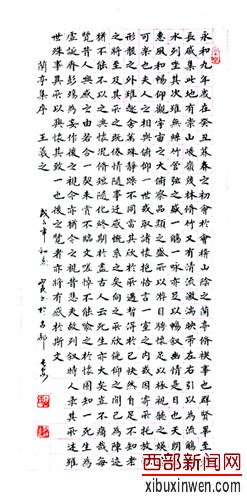 永和九年歲在癸丑暮春之初會於會稽山陰之蘭亭修禊事也群賢畢至少
長咸集此地有崇山峻嶺茂林修竹又有清流激湍映帶左右引以為流觴曲
水列坐其次雖無絲竹管弦之盛一觴一詠亦足以暢敘幽情是日也天朗氣清
惠風和暢仰觀宇宙之大俯察品類之盛所以遊目騁懷足以極視聽之娛信
可樂也夫人之相與俯仰一世或取諸懷抱悟言一室之內或因寄所托放浪
形骸之外雖趣舍萬殊靜躁不同當其欣於所遇暫得於己快然自足不知老
之將至及其所之既倦情隨事遷感慨系之矣向之所欣俯仰之間已為陳迹
猶不能不以之興懷況修短隨化終期於盡古人云死生亦大矣豈不痛哉每
覽昔人興感之由若合一契未嘗不臨文嗟悼不能喻之於懷固知一死生為
虛誕齊彭殤為妄作後之視今亦猶今之視昔悲夫故列敘時人錄其所述雖
世殊事異所以興懷其致一也後之覽者亦將有感於斯文
蘭亭集序 王羲之
年 於
西部新闻网
xibuxinwen.com